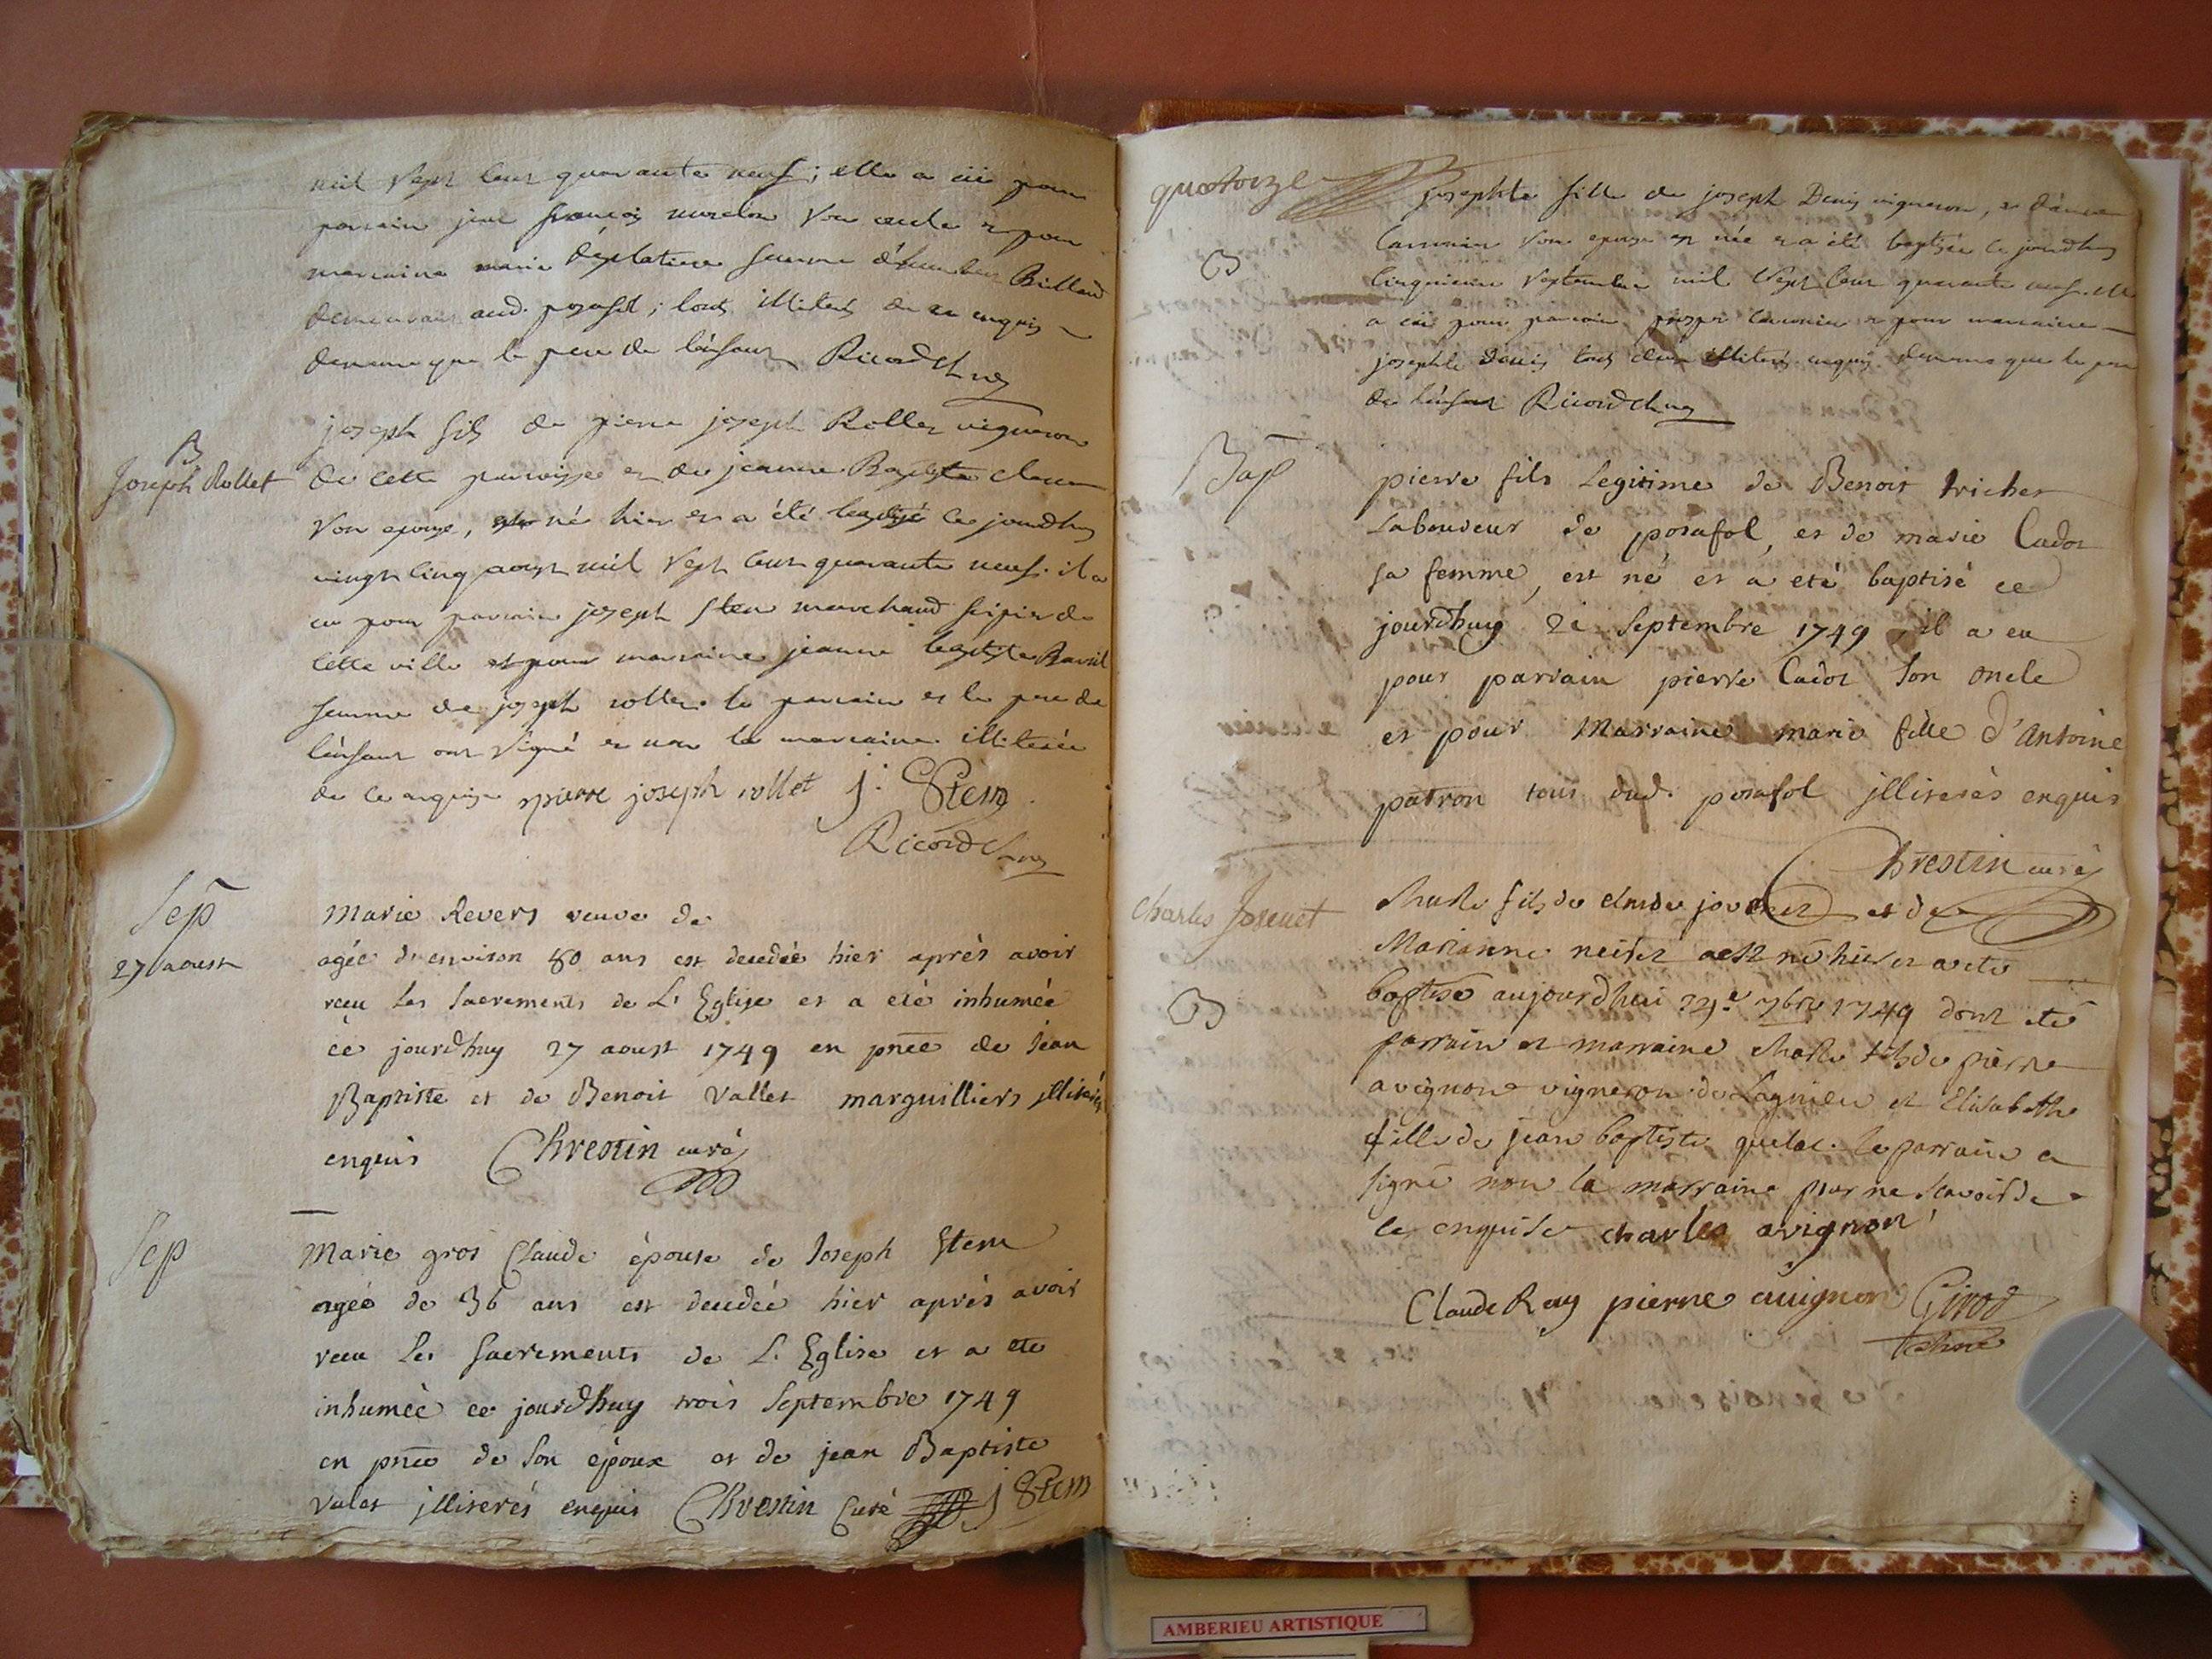 mil sept cent quarante neuf; elle a eü pour
parrain jean françois son oncle et pour
marraine marie déplatiere femme Billard
demeurant aud. posafol; tous illiterés de ce enquis
le pere de l'enfant Ricord
B
Joseph Rollet
joseph fils de pierre joseph Rollet vigneron
de cette parroisse et de jeanne Baptiste
son epouse, né hier et a été baptisé ce jourdhuy
vingt cinq aoust mil sept cent quarante neuf. il a
eu pour parrain joseph Stem marchand fripier de
cette ville et pour marraine jeanne baptiste Ravil
femme de joseph rollet. le parrain et le pere de
l'enfant ont signé et non la marraine illiterée
de ce enquise pierre joseph rollet j. Stem
Ricord
Sep
27 aoust
Marie Revers veuve de
agée denviron 80 ans est decedée hier après avoir
reçu les sacrements de L'Eglise et a eté inhumée
ce jourdhuy 27 aoust 1749 en pnce de Jean
Baptiste et de Benoit Vallet marguilliers illiterés
enquis Chrestin curé
Sep
Marie gros Claude épouse de Joseph Stem
agée de 36 ans est decedée hier après avoir
receu Les Sacrements de L'Eglise et a eté
inhumée ce jourdhuy trois Septembre 1749
en pnce de Son époux et de jean Baptiste
valet jlliterés enquis Chrestin Curé j Stem
quatorze
B
josephte fille de joseph Denis vigneron, et
son epouse est née et a été baptisée ce jourdhuy
cinquieme septembre mil sept cent quarante neuf. elle
a eü pour parrain et pour marraine
josephte Denis tous deux illiterés enquis le pere
de l'enfant Ricord
Bap
pierre fils Legitime de Benoit trichet
Laboureur de posafol, et de marie Cador
sa femme, est né et a eté baptisé ce
jourdhuy 21 Septembre 1749, il a eu
pour parrain pierre Cador son oncle
et pour Marraine marie fille d'Antoine
patron tous dud. posafol jlliterés enquis
Chrestin curé
Charles Jovenet
B
Charle fils de claude et de
Marianne est né hier et a eté
baptisé aujourdhui 29e 7bre 1749 dont eté
parrain et marraine charle fils de pierre
avignon vigneron de Lagnieu et Elisabethe
fille de jean baptiste quelac. le parrain a
signé non la marraine pour ne scavoir de
ce enquise charles avignon
Claude Ray pierre avignon Girod
AMBERIEU ARTISTIQUE